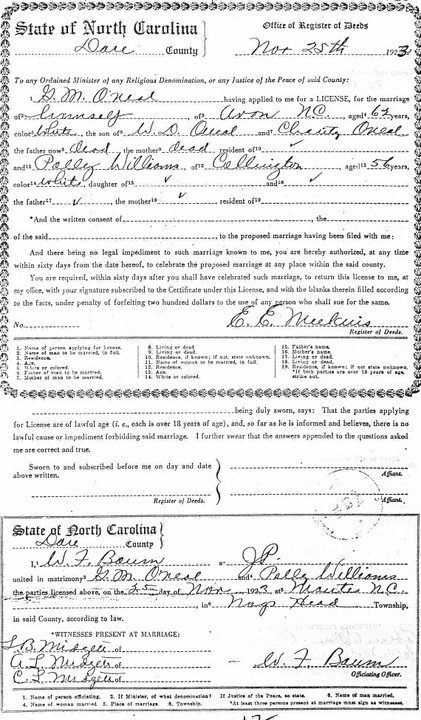 State of North Carolina Office of Register of Deeds
Dare County Nov 25th 1923
To any Ordained Minister of any Religious Denomination, or any Justice of the Peace of said County:
G. M. O'neal having applied to me for a LICENSE, for the marriage
of himself of Avon N.C. aged 62 years,
color White the son of W. D. Oneal and Charity Oneal
the father now dead, the mother dead resident of
and Polly Williams of Collington aged 56 years
color White, daughter of and
the father , the mother resident of
*And the written consent of , the
of the said to the proposed marriage having been filed with me:
And there being no legal impediment to such marriage known to me, you are hereby authorized, at any time
within sixty days from the date hereof, to celebrate the proposed marriage at any place within the said county.
You are required, within sixty days after you shall have celebrated such marriage, to return this license to me, at
my office, with your signature subscribed to the Certificate under this License, and with the blanks therein filled according
to the facts, under penalty of forfeiting two hundred dollars to the use of any person who shall sue for the same.
No. E. E. Meekins
Register of Deeds.
1. Name of person applying for license. 8. Living or dead. 15. Father's name.
2. Name of man to be married, in full. 9. Living or dead. 16. Mother's name.
3. Residence. 10. Residence, if known; if not, state unknown. 17. Living or dead.
4. Age. 11. Name of woman to be married, in full. 18. Living or dead.
5. White or colored. 12. Residence. 19. Residence, if known; if not state unknown.
6. Father of man to be married. 13. Age. *If both parties are over 18 years of age,
7. Mother of man to be married. 14. White or colored. strike out.
being duly sworn, says: That the parties applying
for License are of lawful age (i. e., each is over 18 years of age), and, so far as he is informed and believes, there is no
lawful cause or impediment forbidding said marriage. I further swear that the answers appended to the questions asked
me are correct and true.
Sworn to and subscribed before me on day and date
above written. Affiant.
Register of Deeds. Affiant.
State of North Carolina
Dare County
I, W. F. Baum a J.P.
united in matrimony G. M. O'neal and Polly Williams
the parties licensed above, on the 25 day of Nov 1923 at Manteo N.C.
in Nags Head Township,
in said County, according to law.
*WITNESSES PRESENT AT MARRIAGE:
L. B. Midgett of
A. L. Midgett of W F Baum
C. L. Midgett of Officiating Officer.
1. Name of person officiating. 2. If Minister, of what denomination? If Justice of Peace, so state. 3. Name of man married.
4. Name of woman married. 5. Place of marriage. 6. Township. *At least three persons present at marriage must sign as witnesses.